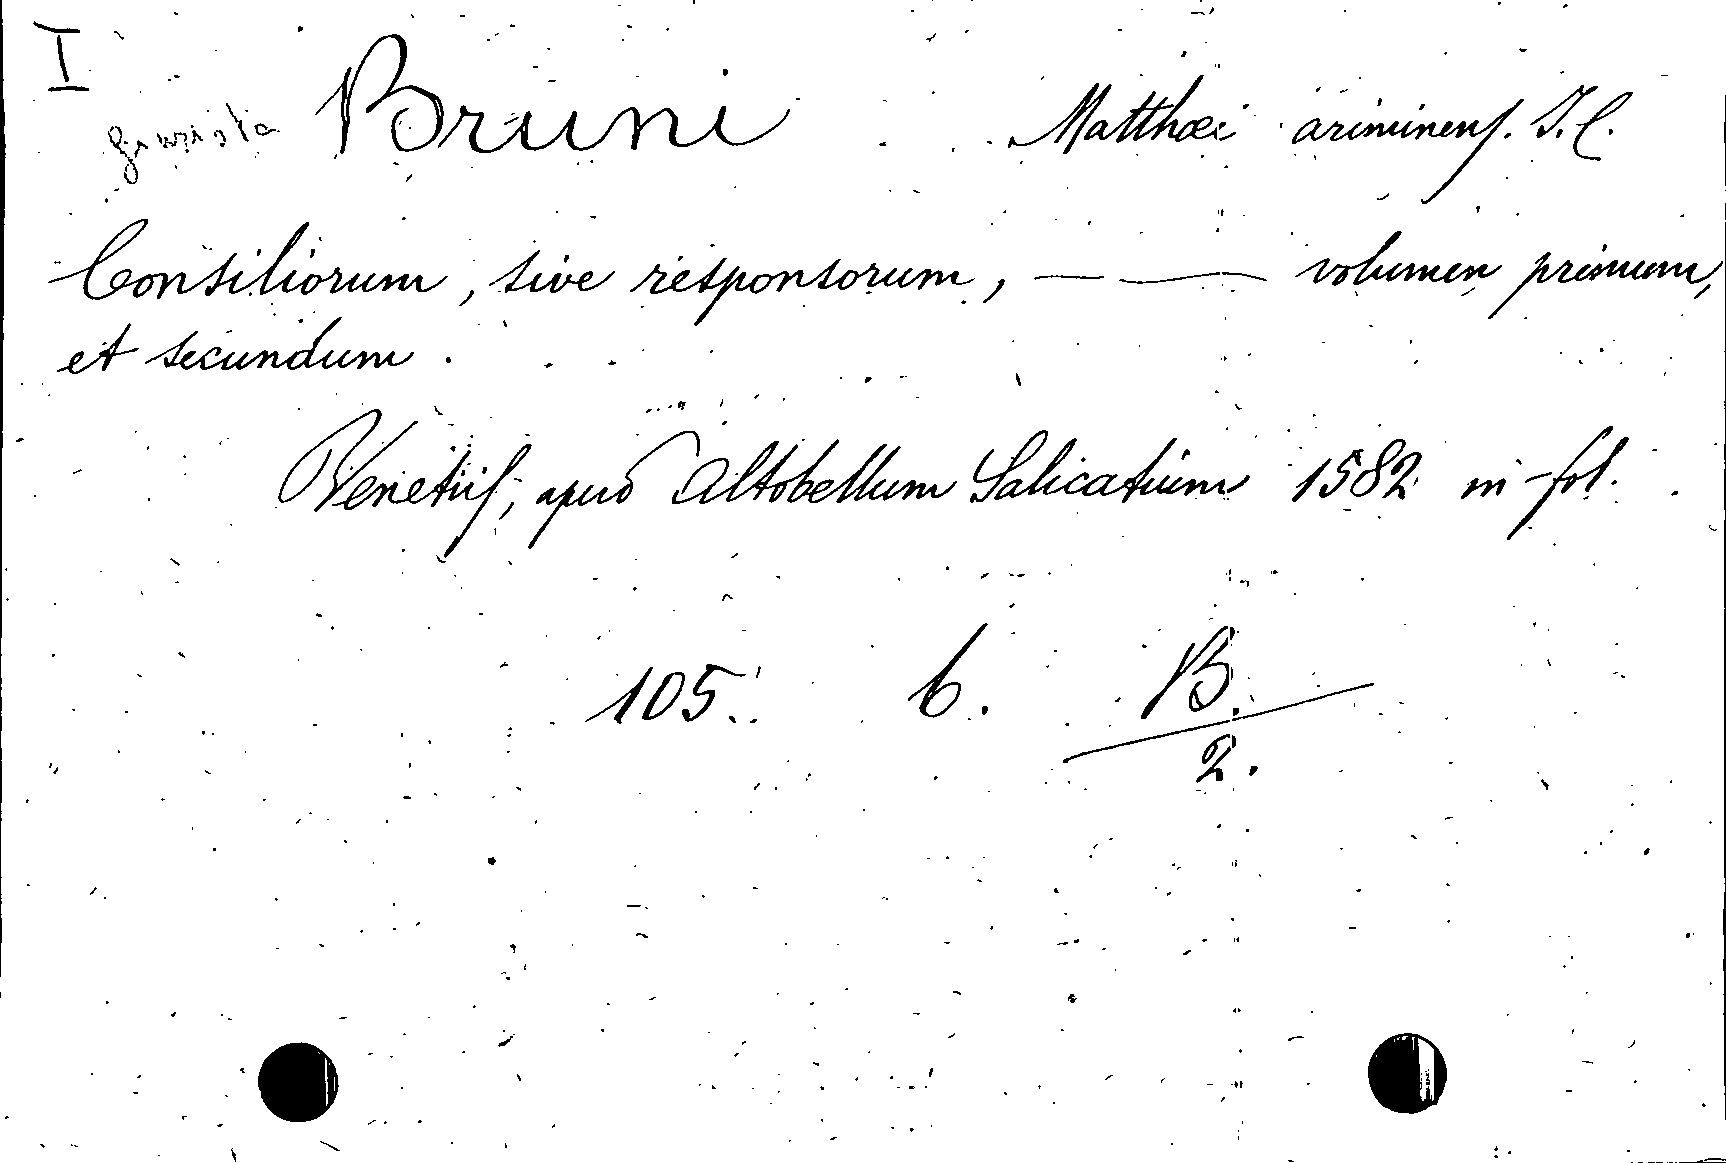 I
giurista Bruni Matthæi ariminens. I.C.
Consiliorum, sive responsorum, — — volumen primum,
et secundum.
Venetiis, apud Altobellum Salicatium 1582 in-fol.
105. 6. B.
2.